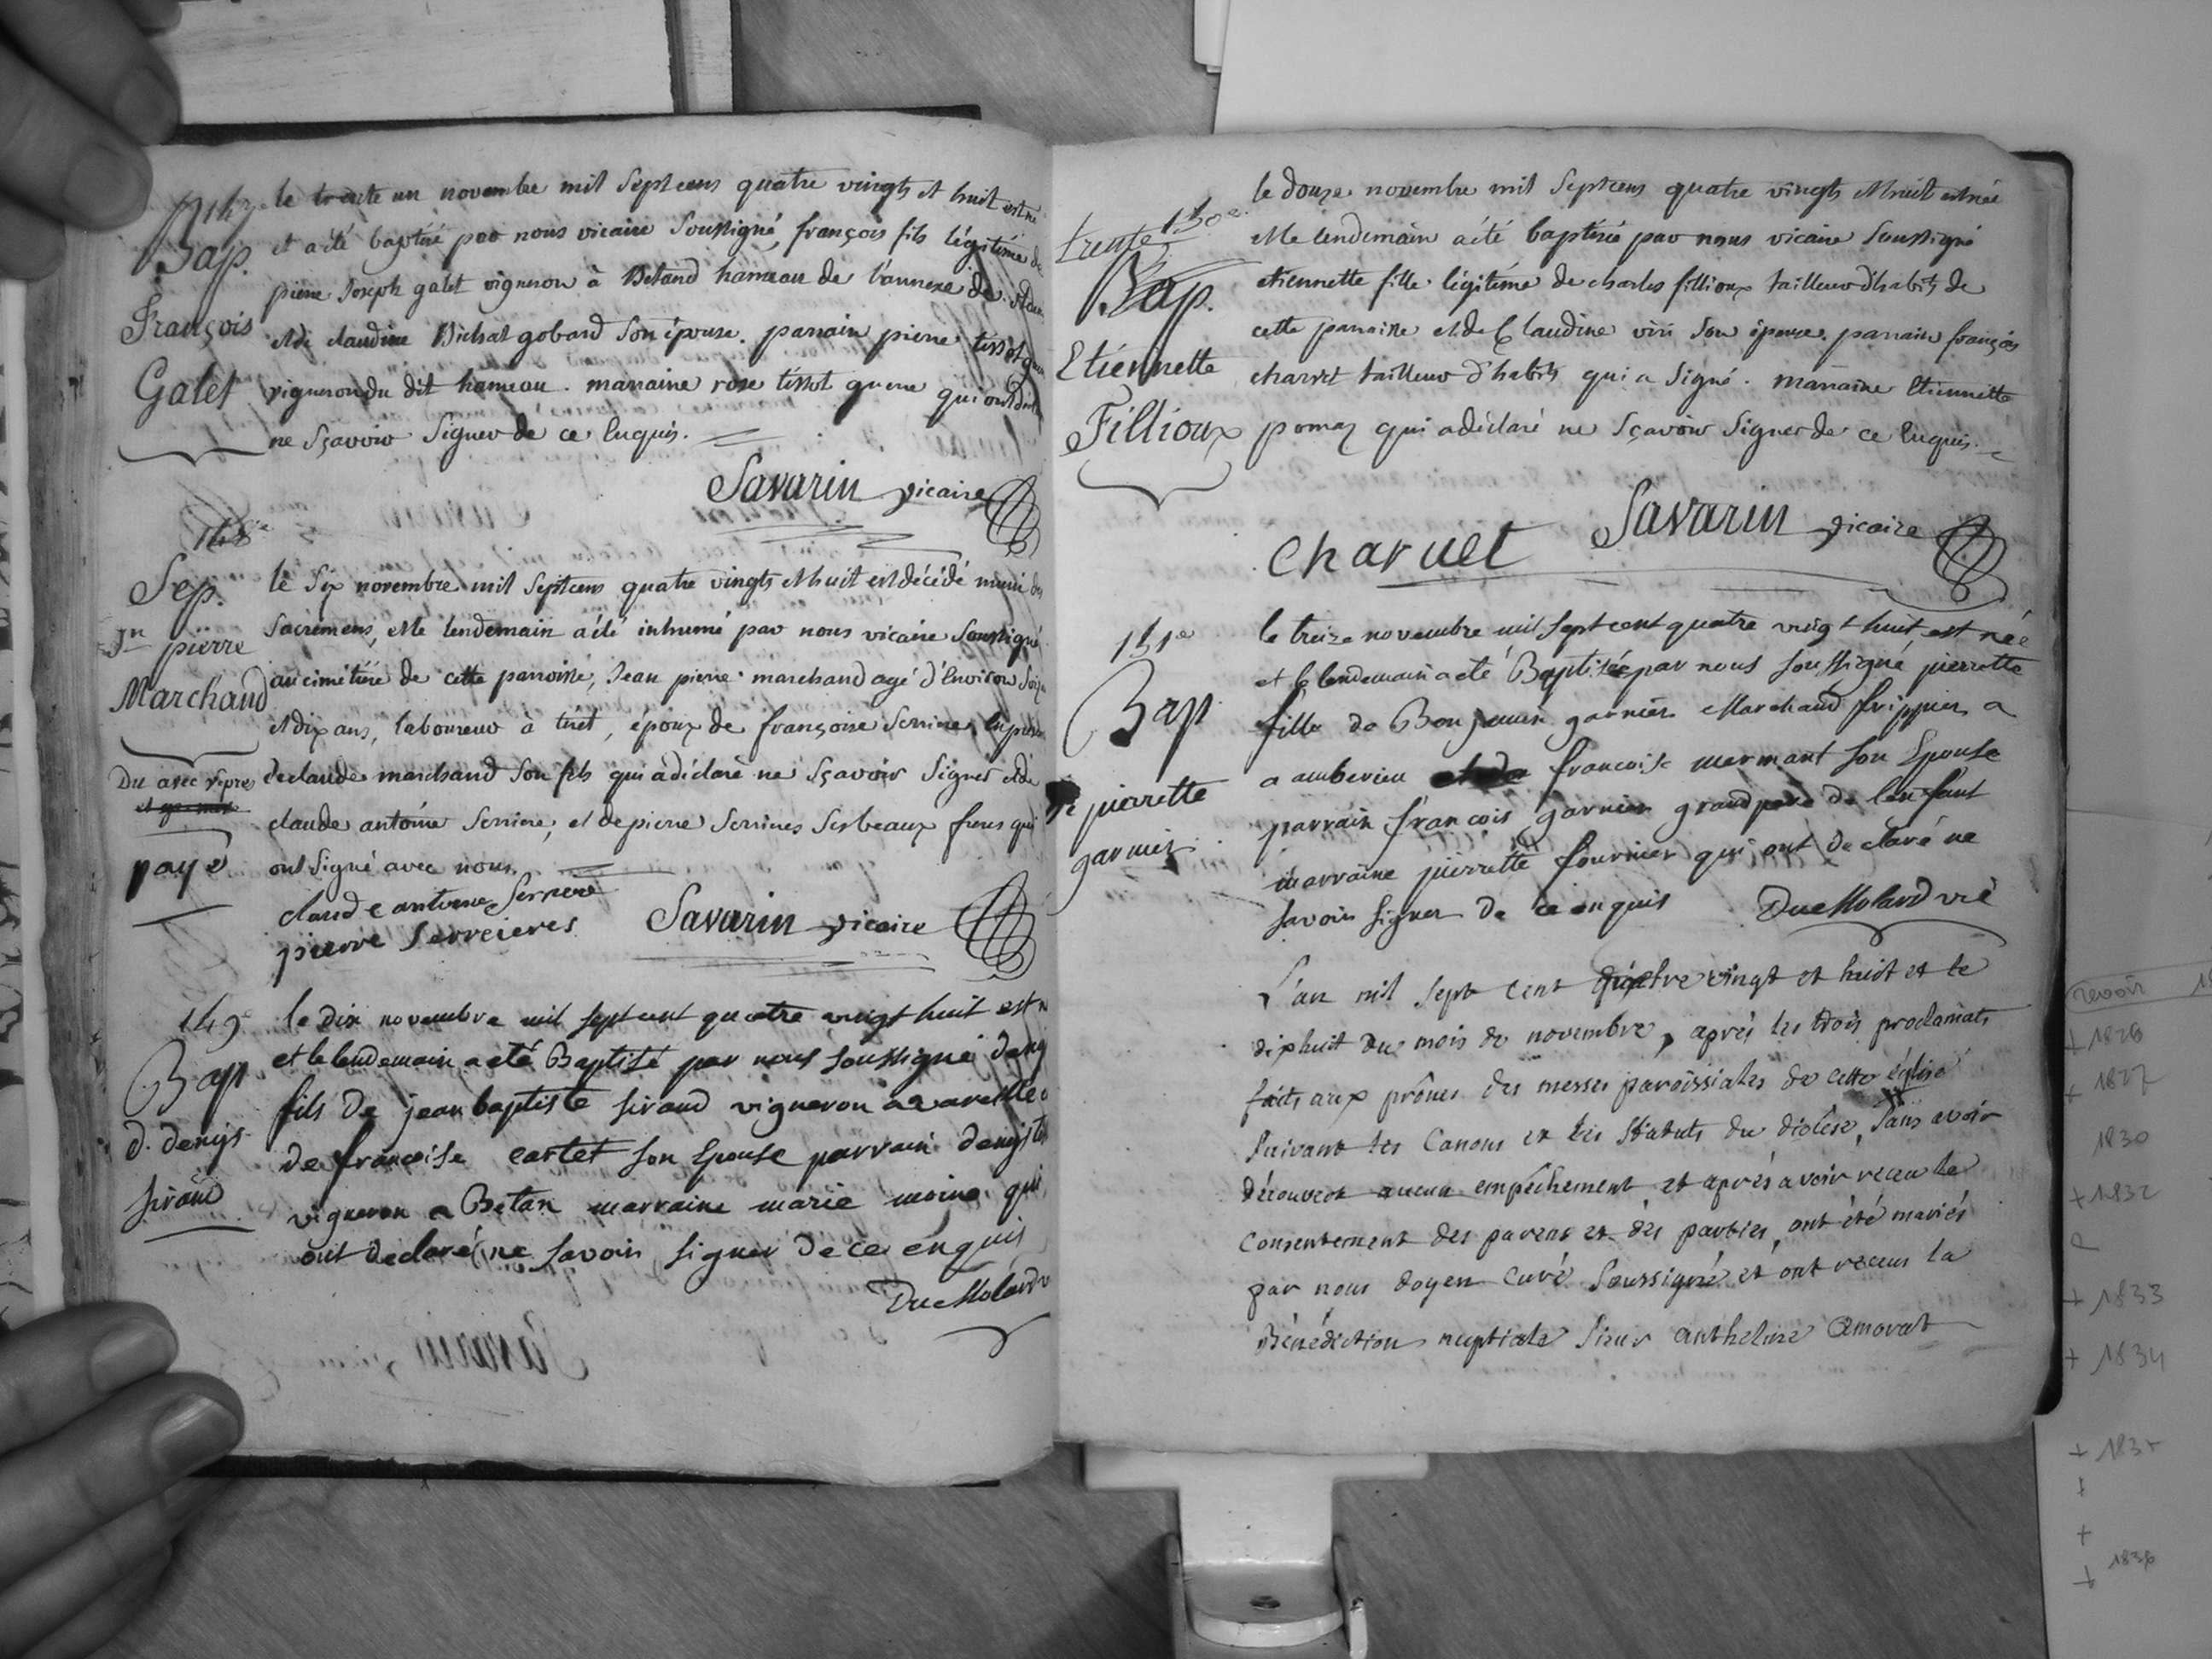 147
Bap.
François
Galet
le trente un novembre mil Sept cens quatre vingts et huit est né
et a été baptisé par nous vicaire Soussigné, françois fils légitime de
pierre Joseph galet vigneron à Betand hameau de l'annexe de
et de claudine Bichat gobard Son épouse. parrain pierre tissot
vigneron du dit hameau. marraine rose tissot guerre qui ont
ne Sçavoir Signer de ce Enquis.
Savarin vicaire
148e
Sep.
Jn pierre
Marchand
Du avec vepres
payé
le Six novembre mil Septcens quatre vingts et huit est décédé muni des
Sacremens, et le lendemain a été inhumé par nous vicaire Soussigné
au cimétière de cette parroisse, Jean pierre marchand agé d'Environ Soix
et dix ans, laboureur à tiret, époux de françoise Serriere, En pres
de claude marchand Son fils qui a déclaré ne Sçavoir Signer et de
claude antoine Serriere, et de pierre Serrieres Ses beaux freres qui
ont Signé avec nous.
claude antoine Serriere
pierre Serreieres
Savarin vicaire
149e
Bap
d. denijs
siraud
le dix novembre mil sept cent quatre vingt huit est n
et le lendemain a eté Baptisé par nous soussigné denij
fils de jean baptiste siraud vigneron a vareilles
de francoise cartet son Epouse parrain denijs
vigneron a Betan marraine marie moine qui
ont declaré ne savoir signer de ce enquis
Du Molard v
150e
trente
Bap.
Etiennette
Fillioux
le douze novembre mil Septcens quatre vingts et huit est née
et le lendemain a été baptisée par nous vicaire Soussigné
etiennette fille légitime de charles fillioux tailleur d'habits de
cette parroisse et de Claudine viri Son épouse. parrain françois
charvet tailleur d'habits qui a Signé. marraine Etiennette
pomaz qui a déclaré ne Sçavoir Signer de ce Enquis.
charvet
Savarin vicaire
151e
Bap
pierrette
garnier
le treize novembre mil sept cent quatre vingt huit est née
et le lendemain a eté Baptisée par nous soussigné pierrette
fille de Benjamin garnier Marchand frippier a
a amberieu francoise mermant son Epouse
parrain francois garnier grand pere de lenfant
marraine pierrette fournier qui ont declaré ne
savoir signer de ce enquis Du Molard vic
L'an mil sept cent quatre vingt et huit et le
dixhuit du mois de novembre, aprés les trois proclamats
faits aux prônes des messes paroissiales de cette église
suivant les Canons et les Statuts du diocèse, sans avoir
découvert aucun empêchement et aprés avoir receu le
consentement des parens et des parties, ont été mariés
par nous doyen curé soussigné et ont receu la
Bénédiction nuptiale Sieur anthelme Amorat
revoir
+ 1826
+ 1827
1830
+ 1832
+ 1833
+ 1834
+ 1835
+
+
+ 1836